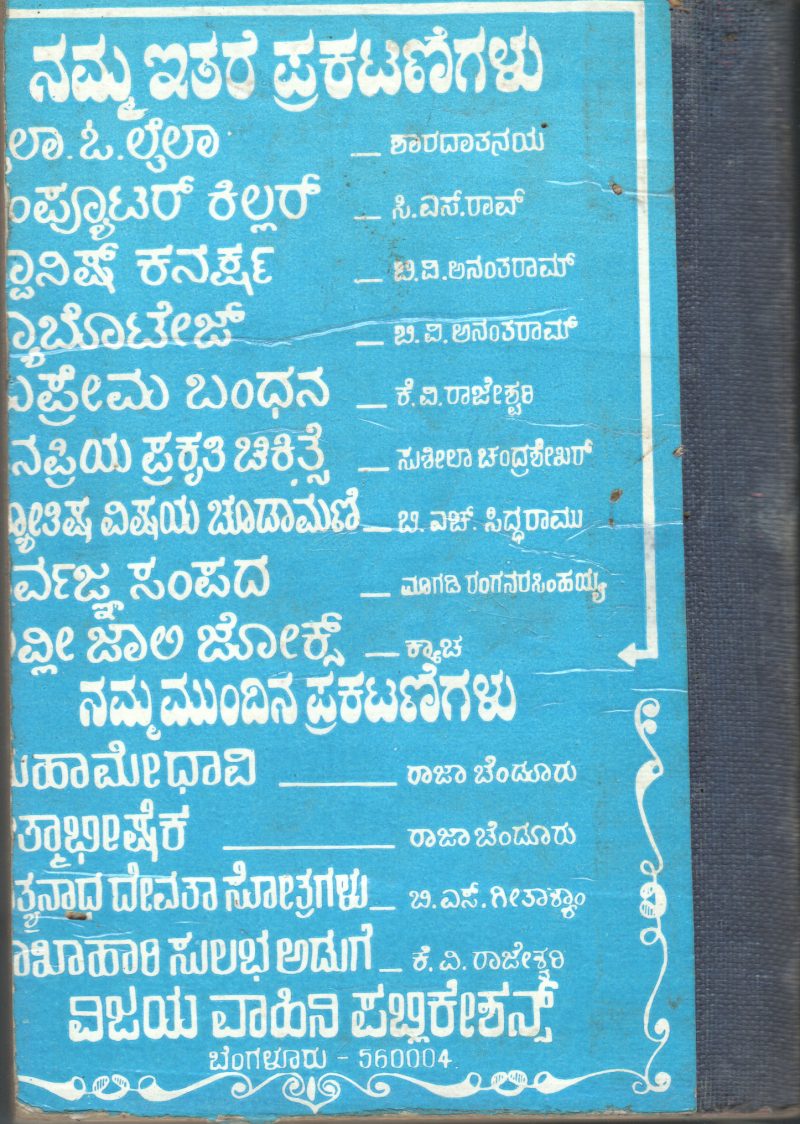 ನಮ್ಮ ಇತರೆ ಪ್ರಕಟಣೆಗಳು
ಲಾ. ಓ. ಲೈಲಾ — ಶಾರದಾತನಯ
ಂಪ್ಯೂಟರ್ ಕಿಲ್ಲರ್ — ಸಿ.ಎಸ್.ರಾವ್
ಾನಿಷ್ ಕನಕ್ಷನ್ — ಬಿ.ವಿ.ಅನಂತರಾಮ್
ಬೊಟೇಜ್ — ಬಿ.ವಿ.ಅನಂತರಾಮ್
ಪ್ರೇಮ ಬಂಧನ — ಕೆ.ವಿ.ರಾಜೇಶ್ವರಿ
ನಪ್ರಿಯ ಪ್ರಕೃತಿ ಚಿಕಿತ್ಸೆ — ಸುಶೀಲಾ ಚಂದ್ರಶೇಖರ್
ೋತಿಷ ವಿಷಯ ಚೂಡಾಮಣಿ — ಬಿ. ಎಚ್. ಸಿದ್ಧರಾಮು
ರ್ವಜ್ಞ ಸಂಪದ — ಮಾಗಡಿ ರಂಗನರಸಿಂಹಯ್ಯ
ವ್ಲೀ ಜಾಲಿ ಜೋಕ್ಸ್ — ಕ್ಯಾಚ
ನಮ್ಮ ಮುಂದಿನ ಪ್ರಕಟಣೆಗಳು
ಮಹಾಮೇಧಾವಿ — ರಾಜಾ ಚೆಂಡೂರು
ತ್ಮಾಭೀಷೆಕ — ರಾಜಾ ಚೆಂಡೂರು
ತ್ಯನಾದ ದೇವತಾ ಸೋತ್ರಗಳು — ಬಿ.ಎಸ್.
ಾಖಾಹಾರಿ ಸುಲಭ ಅಡುಗೆ — ಕೆ. ವಿ. ರಾಜೇಶ್ವರಿ
ವಿಜಯ ವಾಹಿನಿ ಪಬ್ಲಿಕೇಶನ್ಸ್
ಬೆಂಗಳೂರು - 560004.